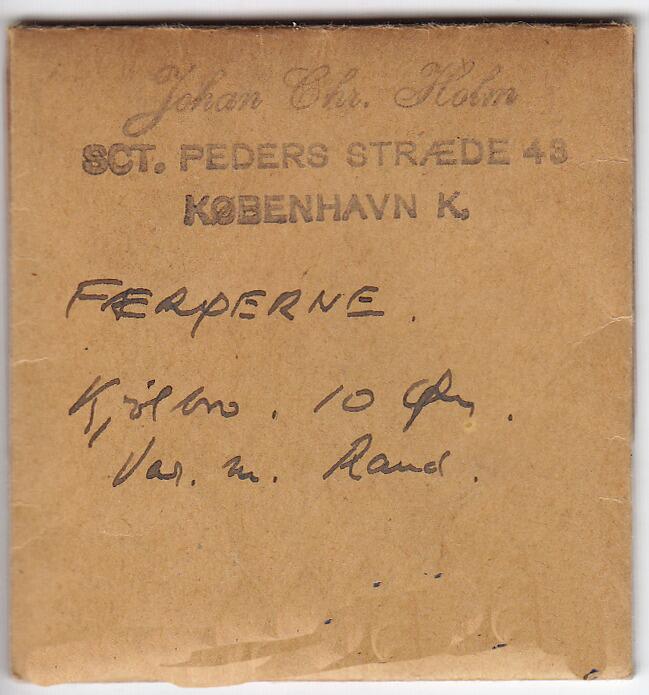 Johan Chr. Holm
SCT. PEDERS STRÆDE 43
KØBENHAVN K.
FÆRØERNE.
Kjølbro. 10 Øre.
Var. m. Rand.